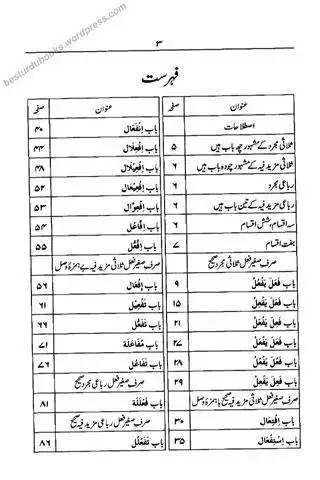 besturdubooks.wordpress.com
۳
فہرست
عنوان صفحہ
اصطلاحات
ثلاثی مجرد کے مشہور چھ باب ہیں ۵
ثلاثی مزید فیہ کے مشہور چودہ باب ہیں ۶
رباعی مجرد ۶
رباعی مزید فیہ کے تین باب ہیں ۶
سہ اقسام، شش اقسام ۶
ہفت اقسام ۷
صرف صغیر فعل ثلاثی مجرد صحیح
باب فعل یفعل ۹
باب فعل یفعل ۱۵
باب فعل یفعل ۲۱
باب فعل یفعل ۲۷
باب فعل یفعل ۲۸
باب فعل یفعل ۲۹
صرف صغیر فعل ثلاثی مزید فیہ صحیح باہمزۂ وصل
باب اِفْتِعَال ۳۰
باب اِسْتِفْعَال ۳۵
عنوان صفحہ
باب اِنْفِعَال ۴۰
باب اِفْعِلَال ۴۴
باب اِفْعِیْلَال ۴۸
باب اِفْعِیْعَال ۵۲
باب اِفْعِوَّال ۵۳
باب اِفَّاعُل ۵۴
باب اِفَّعُّل ۵۵
صرف صغیر فعل ثلاثی مزید فیہ بے ہمزۂ وصل
باب اِفْعَال ۵۶
باب تَفْعِیْل ۶۱
باب تَفَعُّل ۶۶
باب مُفَاعَلَہ ۷۱
باب تَفَاعُل ۷۶
صرف صغیر فعل رباعی مجرد صحیح
باب فَعْلَلَہ ۸۱
صرف صغیر فعل رباعی مزید فیہ صحیح
باب تَفَعْلُل ۸۶